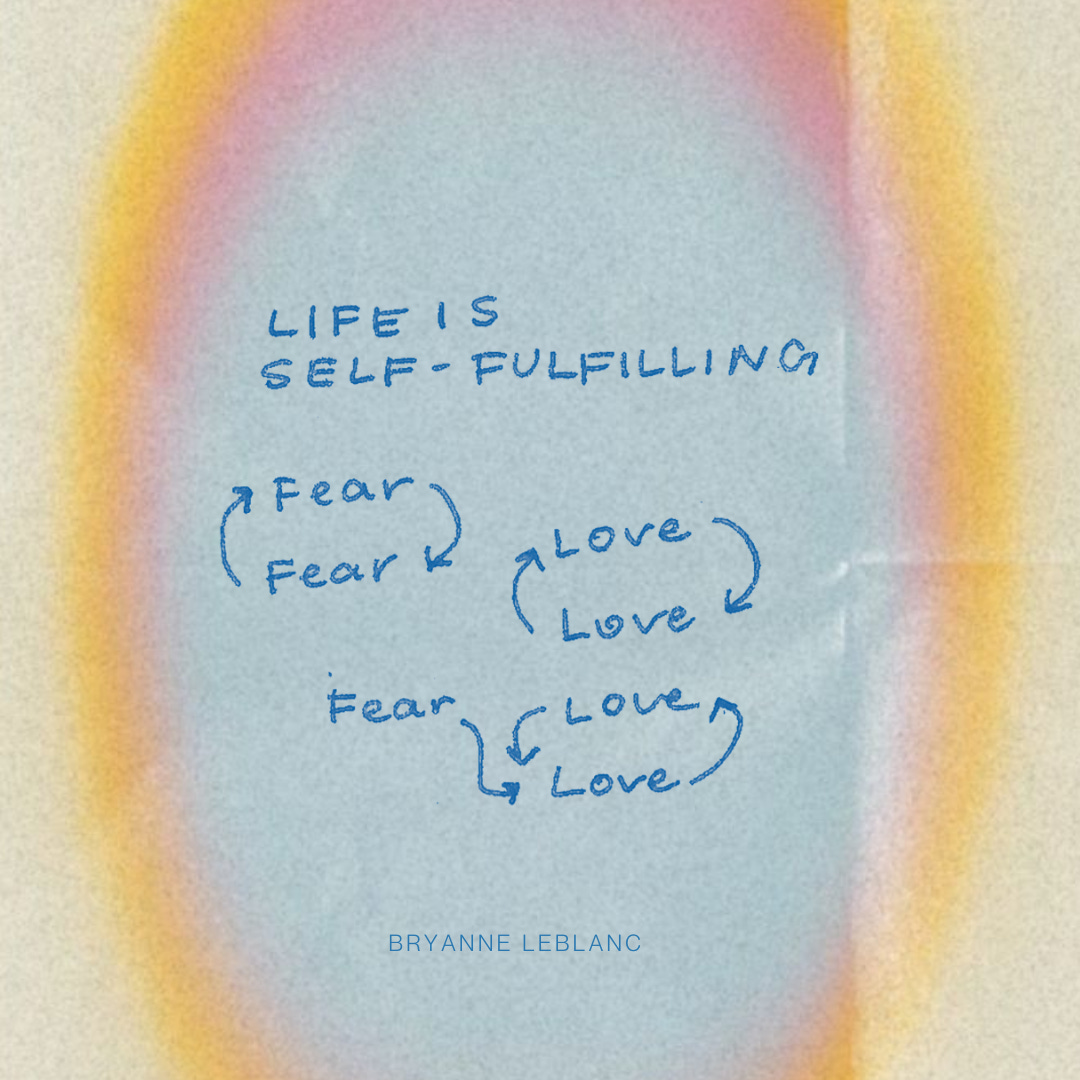 LIFE IS
SELF-FULFILLING
Fear
Fear
Love
Love
Fear Love
Love
BRYANNE LEBLANC